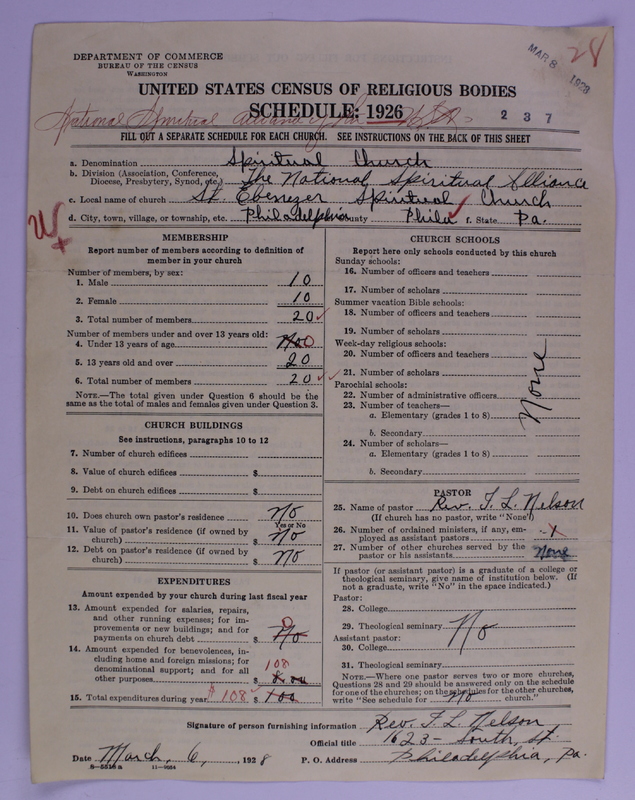 DEPARTMENT OF COMMERCE
BUREAU OF THE CENSUS
WASHINGTON
MAR 8 1928
28
UNITED STATES CENSUS OF RELIGIOUS BODIES
SCHEDULE: 1926
National Spiritual Alliance of the U.S.A.
2 3 7
FILL OUT A SEPARATE SCHEDULE FOR EACH CHURCH. SEE INSTRUCTIONS ON THE BACK OF THIS SHEET
a. Denomination Spiritual Church
b. Division (Association, Conference, Diocese, Presbytery, Synod, etc.) The National Spiritual Alliance
c. Local name of church St. Ebenezer Spiritual Church
d. City, town, village, or township, etc. Philadelphia County Phila f. State Pa.
MEMBERSHIP
Report number of members according to definition of
member in your church
Number of members, by sex:
1. Male 10
2. Female 10
3. Total number of members 20
Number of members under and over 13 years old:
4. Under 13 years of age No 0
5. 13 years old and over 20
6. Total number of members 20
NOTE.—The total given under Question 6 should be
the same as the total of males and females given under Question 3.
CHURCH BUILDINGS
See instructions, paragraphs 10 to 12
7. Number of church edifices
8. Value of church edifices $
9. Debt on church edifices $
10. Does church own pastor's residence No
Yes or No
11. Value of pastor's residence (if owned by
church) $ No
12. Debt on pastor's residence (if owned by
church) $ No
EXPENDITURES
Amount expended by your church during last fiscal year
13. Amount expended for salaries, repairs,
and other running expenses; for im-
provements or new buildings; and for
payments on church debt $ No 0
14. Amount expended for benevolences, in-
cluding home and foreign missions; for
denominational support; and for all
other purposes $ 108
15. Total expenditures during year $ 108 $ 1.00
CHURCH SCHOOLS
Report here only schools conducted by this church
Sunday schools:
16. Number of officers and teachers
17. Number of scholars
Summer vacation Bible schools:
18. Number of officers and teachers
19. Number of scholars
Week-day religious schools:
20. Number of officers and teachers
21. Number of scholars
Parochial schools:
22. Number of administrative officers
23. Number of teachers—
a. Elementary (grades 1 to 8)
b. Secondary
24. Number of scholars—
a. Elementary (grades 1 to 8)
b. Secondary
None
PASTOR
25. Name of pastor Rev. T. L. Nelson
(If church has no pastor, write "None")
26. Number of ordained ministers, if any, em-
ployed as assistant pastors
27. Number of other churches served by the
pastor or his assistants None
If pastor (or assistant pastor) is a graduate of a college or
theological seminary, give name of institution below. (If
not a graduate, write "No" in the space indicated.)
Pastor:
28. College
29. Theological seminary No
Assistant pastor:
30. College
31. Theological seminary
NOTE.—Where one pastor serves two or more churches,
Questions 28 and 29 should be answered only on the schedule
for one of the churches; on the schedules for the other churches,
write "See schedule for No church."
Signature of person furnishing information Rev. T. L. Nelson
Official title 1623- South, st.
Date March, 6, 1928 P. O. Address Philadelphia, Pa.
8—5518 a 11—9654